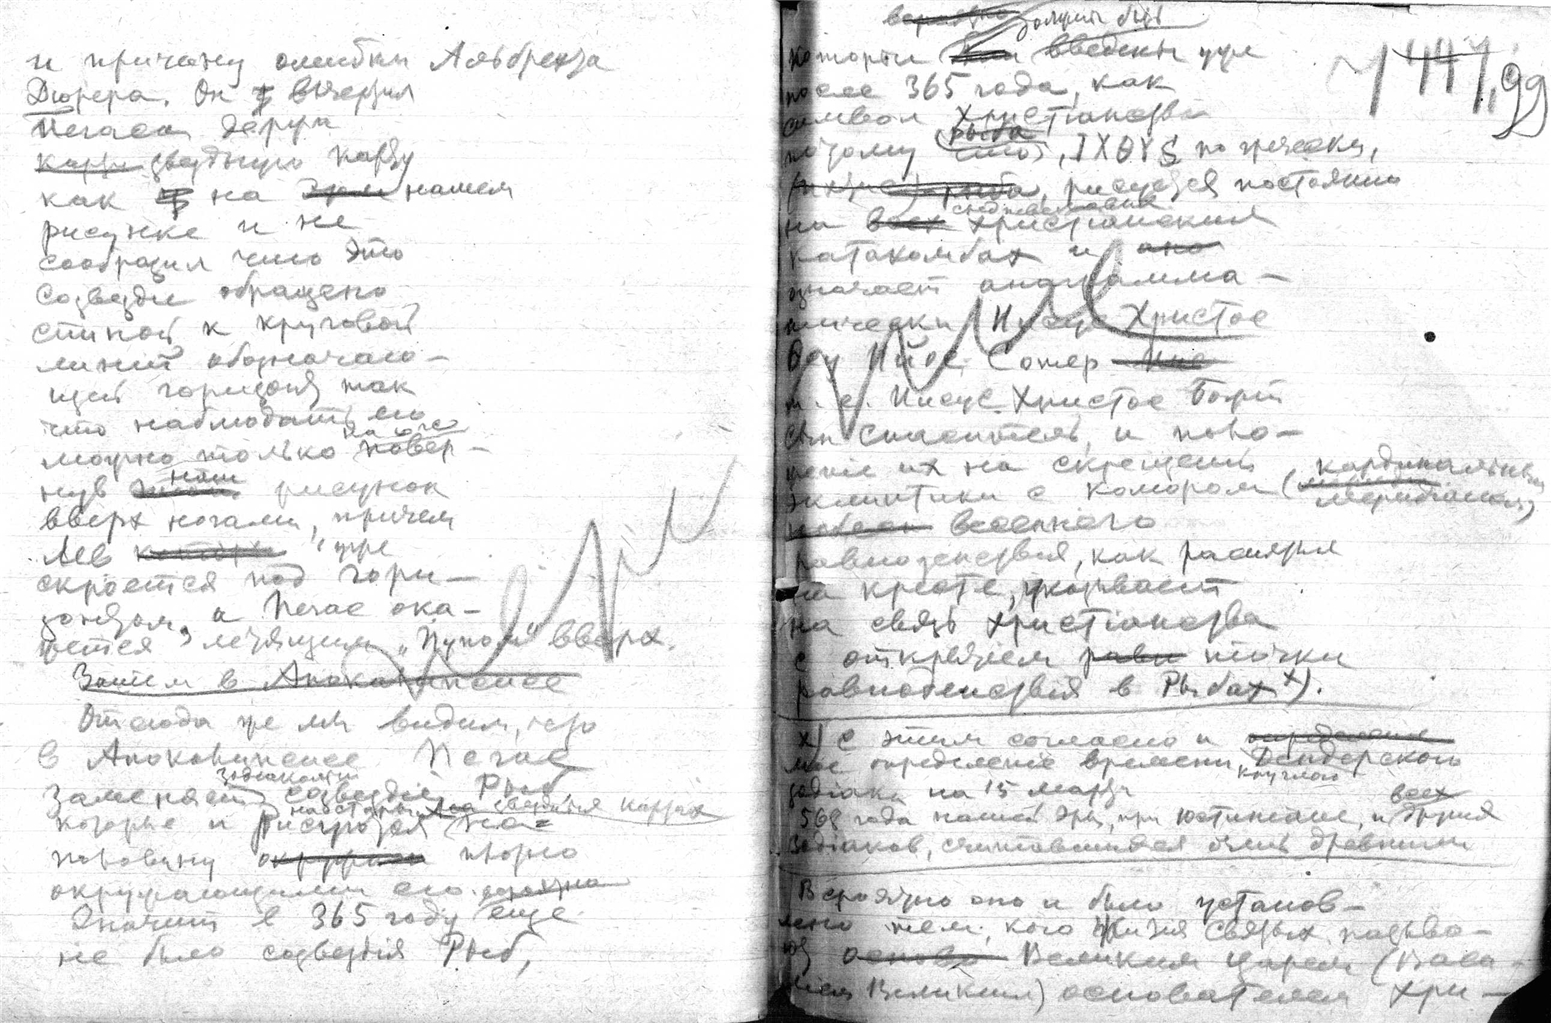 и причину ошибки Альбрехта
Дюрера. Он вычертил
Пегаса держа
карту звездную карту
как на нашем
рисунке и не
сообразил что это
созвездие обращено
спиной к круговой
линии обозначаю-
щей горизонт так
что наблюдать его
можно только на юге повер-
нув наш рисунок
вверх ногами, причем
Лев уже
скроется под гори-
зонтом, а Пегас ока-
жется летящим „Пупом" вверх.
Затем в Апокалипсисе
Отсюда же мы видим, что
в Апокалипсисе Пегас
заменяет зодиакальн созвездие Рыб
которые и рисуются на звездных картах
половину плотно
окружающими его
Значит в 365 году еще
не было созвездия Рыб,
вероятно должны быть
которые введены уже
после 365 года, как
символ Христианства
потому что рыба, ΙΧΘΥΣ по гречески,
рыба, рисуется постоянно
на всех средневековых христианских
катакомбах и
означает анаграмма-
тически Иисус Христос
Θеу Иiос Сотер
т. е. Иисус Христос Божiй
сын спаситель, и поло-
женiе их на скрещенiи
эклиптики с колюром (кардинальным
меридiаном)
весеннего
равноденствiя, как распятыя
на кресте, указывает
на связь христiанства
с открытiем точки
равноденствiя в Рыбах х).
х) С этим согласно и
мое определенiе времени круглого Дендерского
зодiака на 15 марта
568 года нашей эры, при Юстинiане, и всех других
Зодiаков, считавшихся очень древними
Вероятно оно и было установ-
лено тем, кого Житiя Святых называ-
ют Великим царем (Васи-
лiем Великим) основателем хри-
1441,99